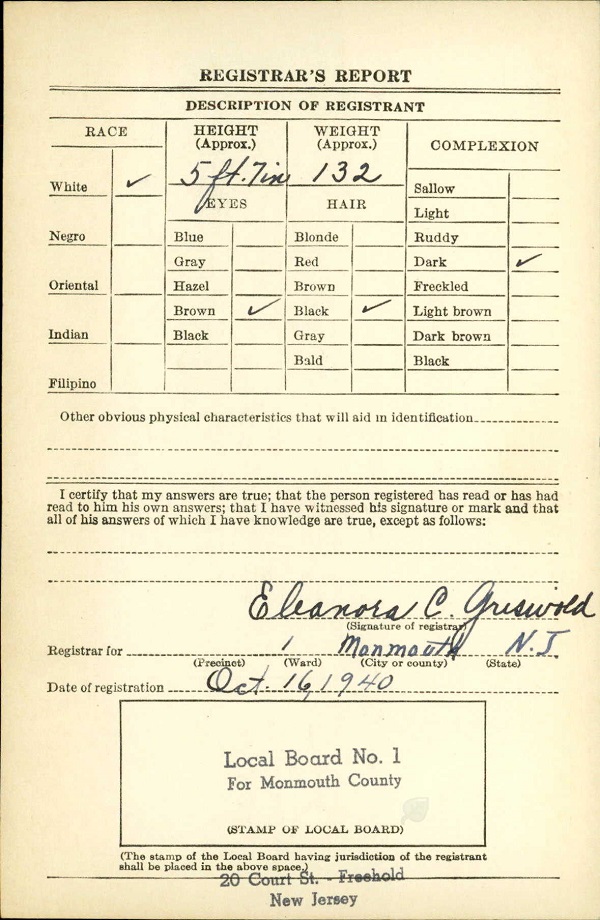 REGISTRAR'S REPORT
DESCRIPTION OF REGISTRANT
RACE
HEIGHT
(Approx.)
WEIGHT
(Approx.)
COMPLEXION
White ✓
5 ft. 7 in
132
Sallow
EYES
HAIR
Light
Negro
Blue
Blonde
Ruddy
Gray
Red
Dark ✓
Oriental
Hazel
Brown
Freckled
Brown ✓
Black ✓
Light brown
Indian
Black
Gray
Dark brown
Bald
Black
Filipino
Other obvious physical characteristics that will aid in identification
I certify that my answers are true; that the person registered has read or has had
read to him his own answers; that I have witnessed his signature or mark and that
all of his answers of which I have knowledge are true, except as follows:
Eleanora C. Griswold
(Signature of registrar)
Registrar for 1 Monmouth N.J
(Precinct) (Ward) (City or county) (State)
Date of registration Oct. 16, 1940
Local Board No. 1
For Monmouth County
(STAMP OF LOCAL BOARD)
(The stamp of the Local Board having jurisdiction of the registrant
shall be placed in the above space.)
20 Court St. - Freehold
New Jersey